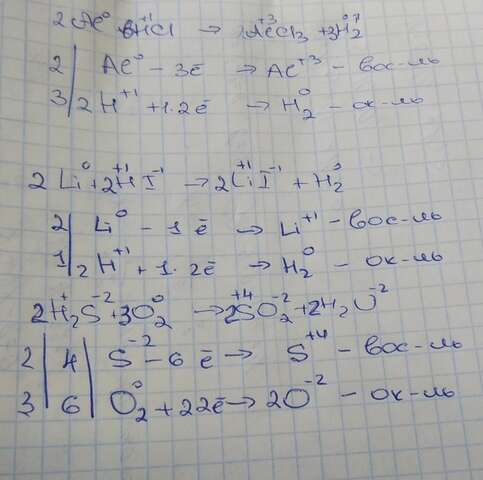 2Al⁰ + 6HCl⁺¹ → 2Al⁺³Cl₃ + 3H₂⁰
2 | Al⁰ - 3ē → Al⁺³ - вос-ль
3 | 2H⁺¹ + 1·2ē → H₂⁰ - ок-ль
2Li⁰ + 2H⁺¹I⁻¹ → 2Li⁺¹I⁻¹ + H₂⁰
2 | Li⁰ - 1ē → Li⁺¹ - вос-ль
1 | 2H⁺¹ + 1·2ē → H₂⁰ - ок-ль
2H₂⁺S⁻² + 3O₂⁰ → 2S⁺⁴O₂⁻² + 2H₂O⁻²
2 | 4 | S⁻² - 6ē → S⁺⁴ - вос-ль
3 | 6 | O₂⁰ + 22ē → 2O⁻² - ок-ль